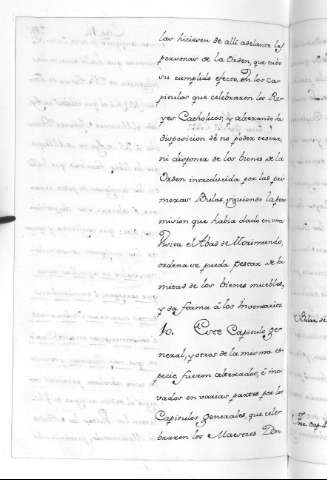 las hicieren de alli adelante las
personas de la Orden, que tubo
su cumplido efecto. En los ca-
pitulos que celebraron los Re-
yes Catholicos, y alterando la
disposicion de no poder testar,
ni disponer de los bienes de la
Orden introducida por las pri-
meras Bulas, siguiendo la per
mision que había dado en una
Visita el Abad de Morimundo,
ordena se pueda testar de la
mitad de los bienes muebles,
y da forma â los Imbentarios
10. Este Capitulo ge-
neral, y otros de la misma es-
pecie fueron alterados, é ino-
vados en varias partes por los
Capitulos generales, que cele-
braron los Maestres Don